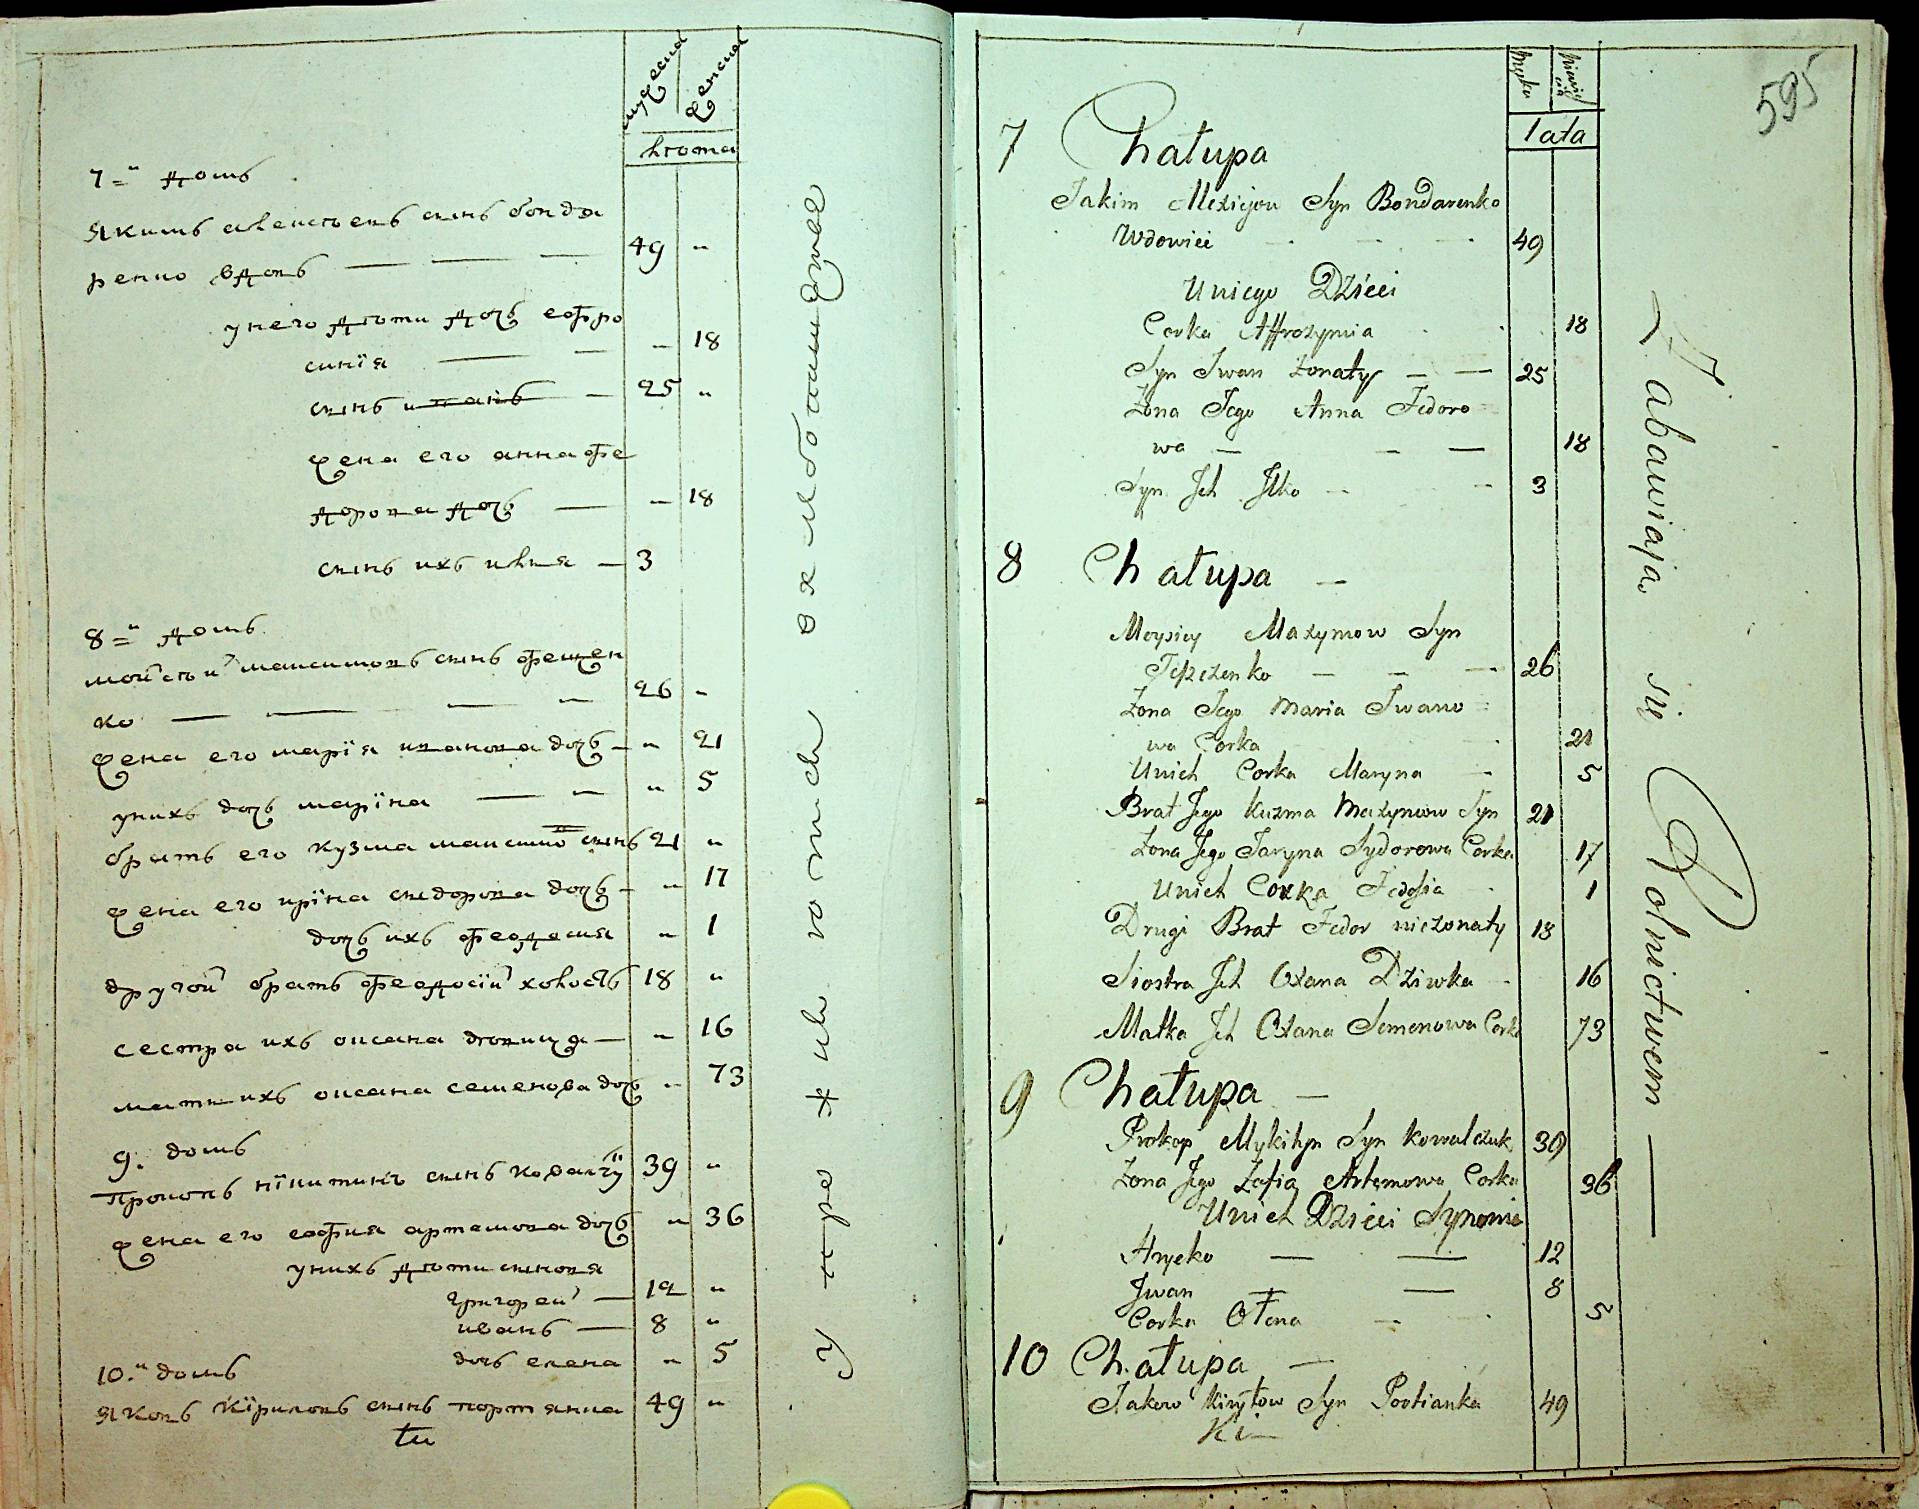 мужеска
женска
лѣта
7=й домъ
Якимъ алексѣевъ сынъ бонда
ренко вдовъ — — — 49 "
у него дѣти дочь ефро
синїя — — — 18
сынъ иванъ — 25 "
жена его анна фе
дорова дочь — — 18
сынъ ихъ илья — 3
8=й домъ
мойсей максимовъ сынъ фещен
ко — — — — 26 "
жена его марїя иванова дочь — " 21
у нихъ дочь марїна — — " 5
братъ его кузма максимо сынъ 21 "
жена его ирїна сидорова дочь — " 17
дочь ихъ феодосия " 1
другой братъ феодосїй холостъ 18 "
сестра ихъ оксана дѣвица — " 16
мать ихъ оксана семенова дочь " 73
9. домъ
Прокопъ нїкитинъ сынъ ковалчу 39 "
жена его софия артемова дочь " 36
у нихъ дѣти сыновя
григорей — 12 "
иванъ — 8 "
дочь елена " 5
10.й домъ
Яковъ Кїриловъ сынъ портянка 49 "
У пражнѣ
595
Męska
Lata
7 Chałupa
Jakim Alexiejou Syn Bondarenko
Wdowiec - - - 49
Uniego Dzieci
Corka Affrozynia 18
Syn Iwan Zonaty — — 25
Zona Jego Anna Fedoro
wa — — — 18
Syn Ich Ilko — - 3
8 Chałupa —
Moysiey Maxymow Syn
Fepczenko — — — 26
Zona Jego Maria Iwano
wa Corka 21
Unich Corka Maryna — 5
Brat Jego Kuzma Maxymow Syn 21
Zona Jego Jaryna Sydorowa Corka 17
Unich Corka Fedosia 1
Drugi Brat Fedor niezonaty 18
Siostra Ich Oxana Dziwka 16
Matka Ich Oxana Semenowa Corka 73
9 Chałupa —
Prokop Mykityn Syn Kowalczuk 39
Zona Jego Zofia Artemowa Corka 36
Unich Dzieci Synowie
Hryćko — — 12
Iwan — — 8
Corka Ołena — 5
10 Chałupa —
Jakow Kiryłow Syn Portianka 49
Ki—
Zabawiają się Rolnictwem —